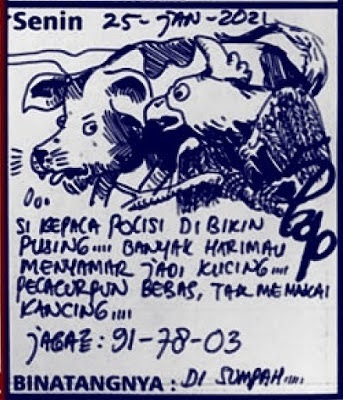 Senin 25-JAN-2021
SI KEPALA POLISI DIBIKIN
PUSING.... BANYAK HARIMAU
MENYAMAR JADI KUCING....
PELACURPUN BEBAS, TAK MEMAKAI
KANCING....
JAGAZ: 91-78-03
BINATANGNYA : DI SUMPAH.....